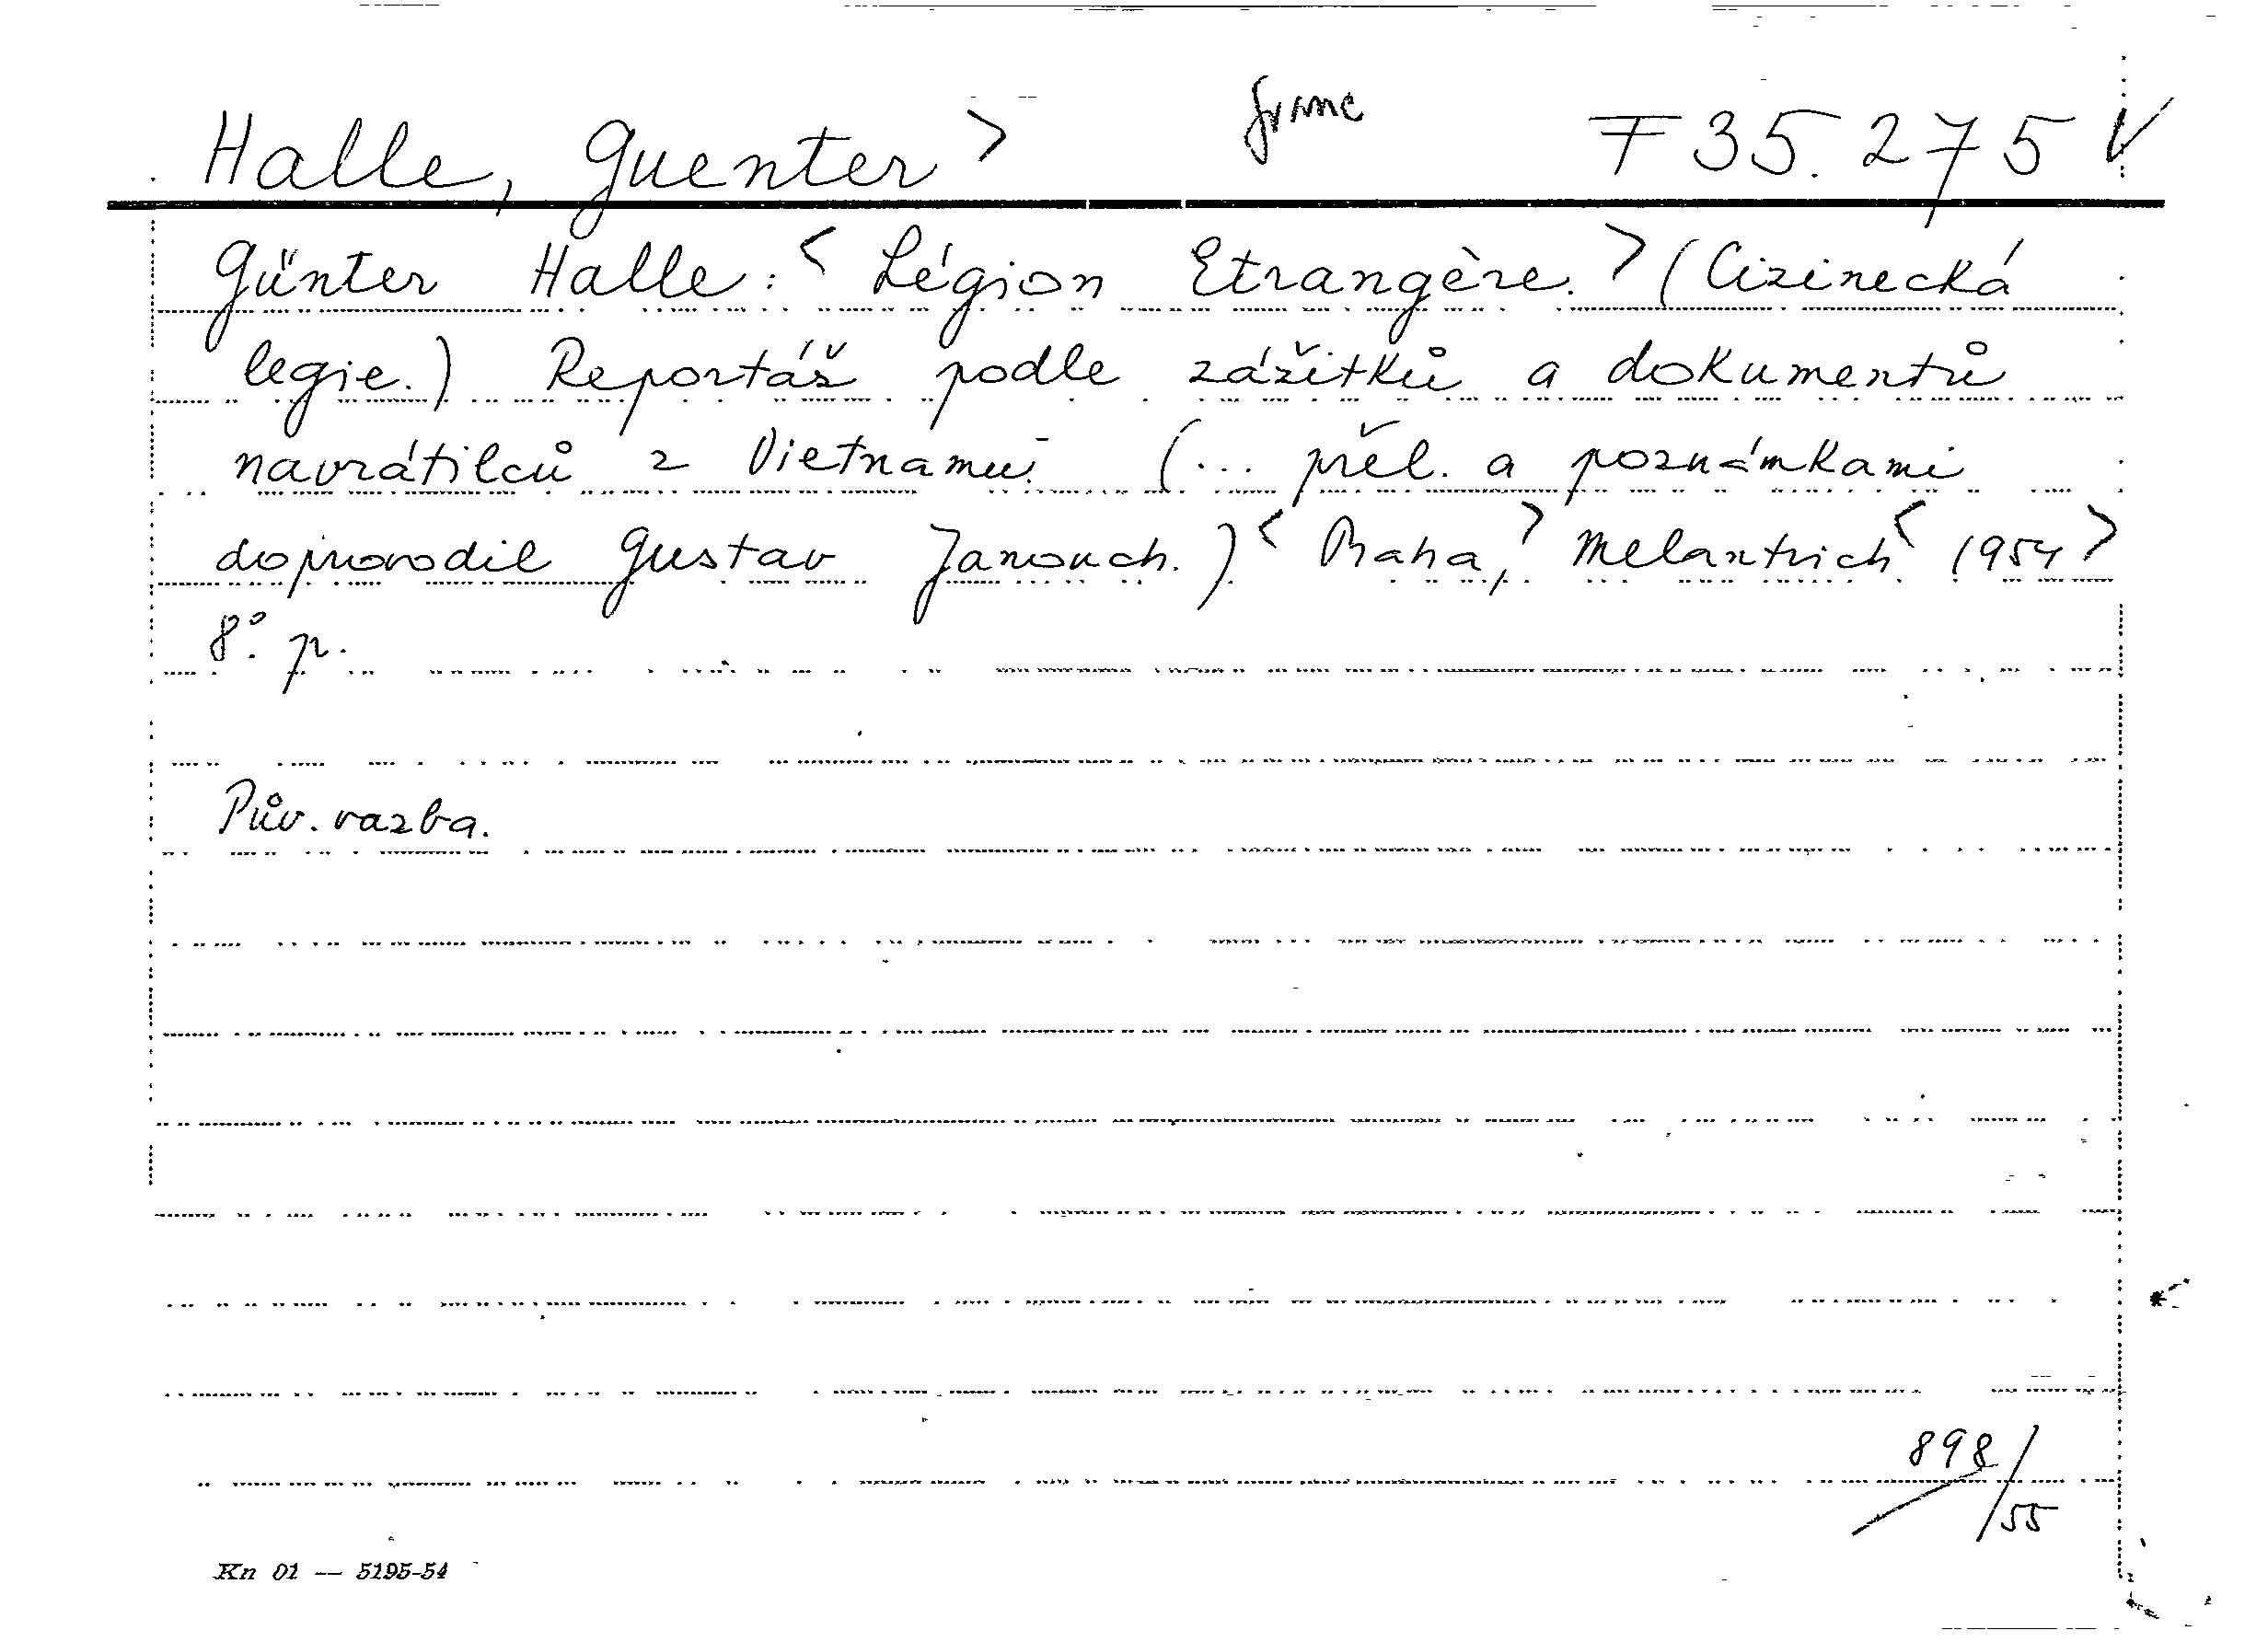 Halle, Guenter > franc F 35.275 V
Günter Halle: < Légion Etrangère. > (Cizinecká
legie.) Reportáž podle zážitků a dokumentů
navrátilců z Vietnamu. (... přel. a poznámkami
doprovodil Gustav Janouch.) < Praha, > Melantrich < 1954 >
8°. p.
Pův. vazba.
898/55
Kn 01 — 5195-54